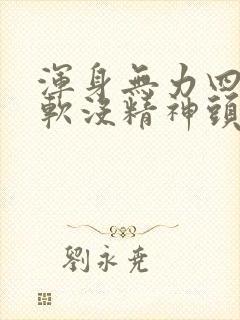 渾身無力四
軟沒精神頭
劉永堯